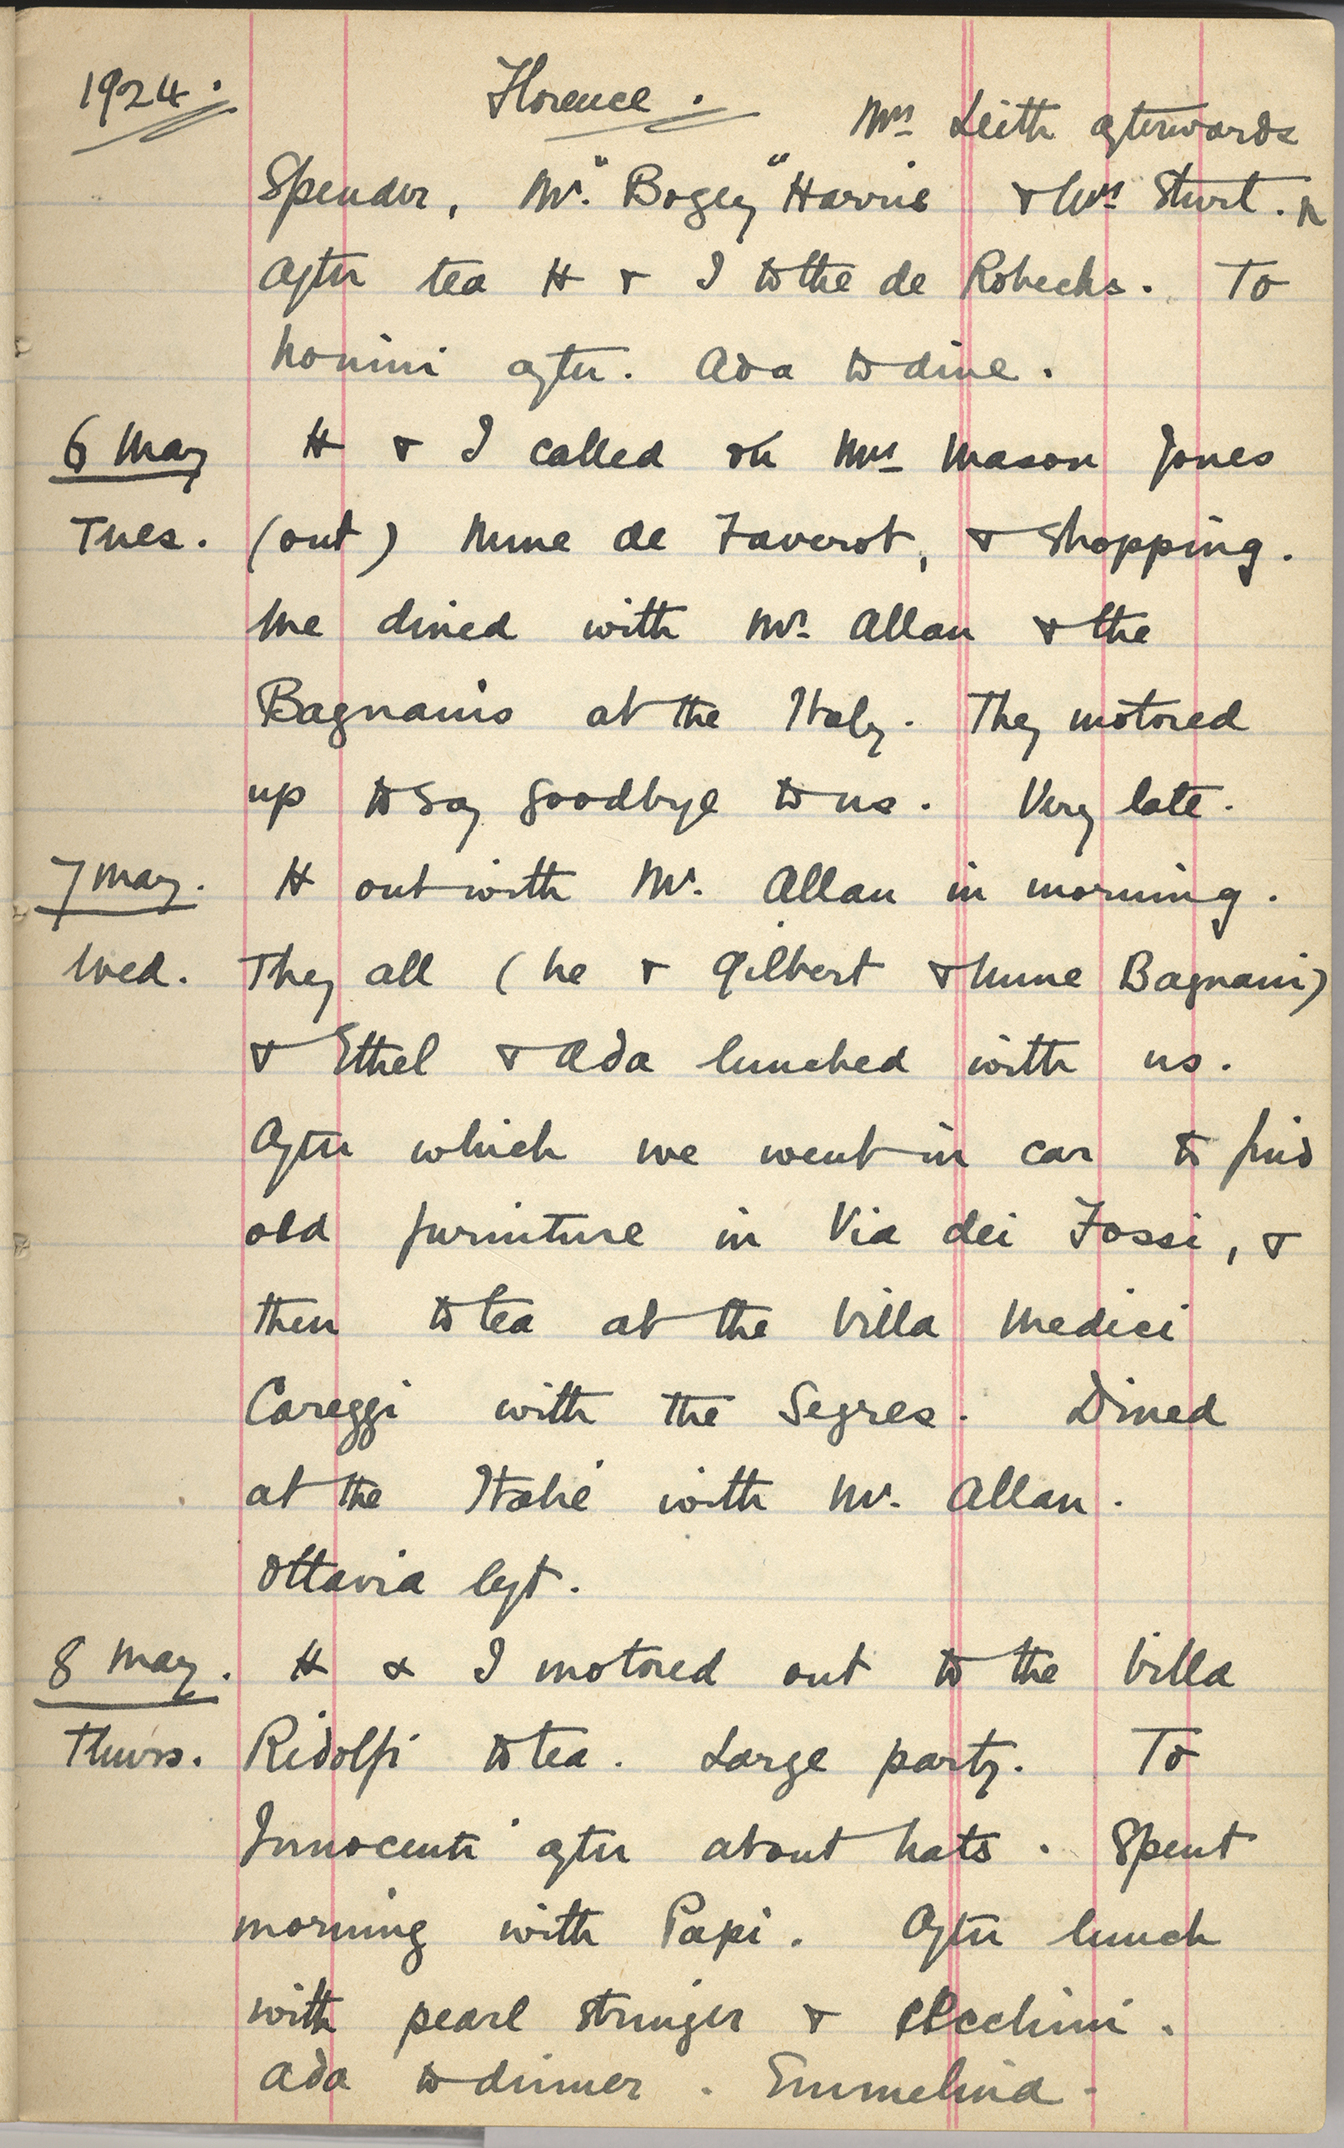 1924.
Florence.
Mrs Leith afterwards
Spender, Mr. "Bogey" Harris & Mrs Sturt.
After tea H & I to the de Robecks. To
Nonini after. Ada to dine.
6 May H & I called on Mrs Mason Jones
Tues. (out) Mme de Faverot, & shopping.
We dined with Mr. Allan & the
Bagnanis at the Italy. They motored
up to say goodbye to us. Very late.
7 May. H out with Mr. Allan in morning.
Wed. They all (he & Gilbert & Mme Bagnani)
& Ethel & Ada lunched with us.
After which we went in car to find
old furniture in Via dei Fossi, &
then to tea at the Villa Medici
Careggi with the Segres. Dined
at the Italie with Mr. Allan.
Ottavia left.
8 May. H & I motored out to the Villa
Thurs. Ridolfi to tea. Large party. To
Innocenti after about hats. Spent
morning with Papi. After lunch
with pearl stringer &
Ada to dinner. Emmelina.